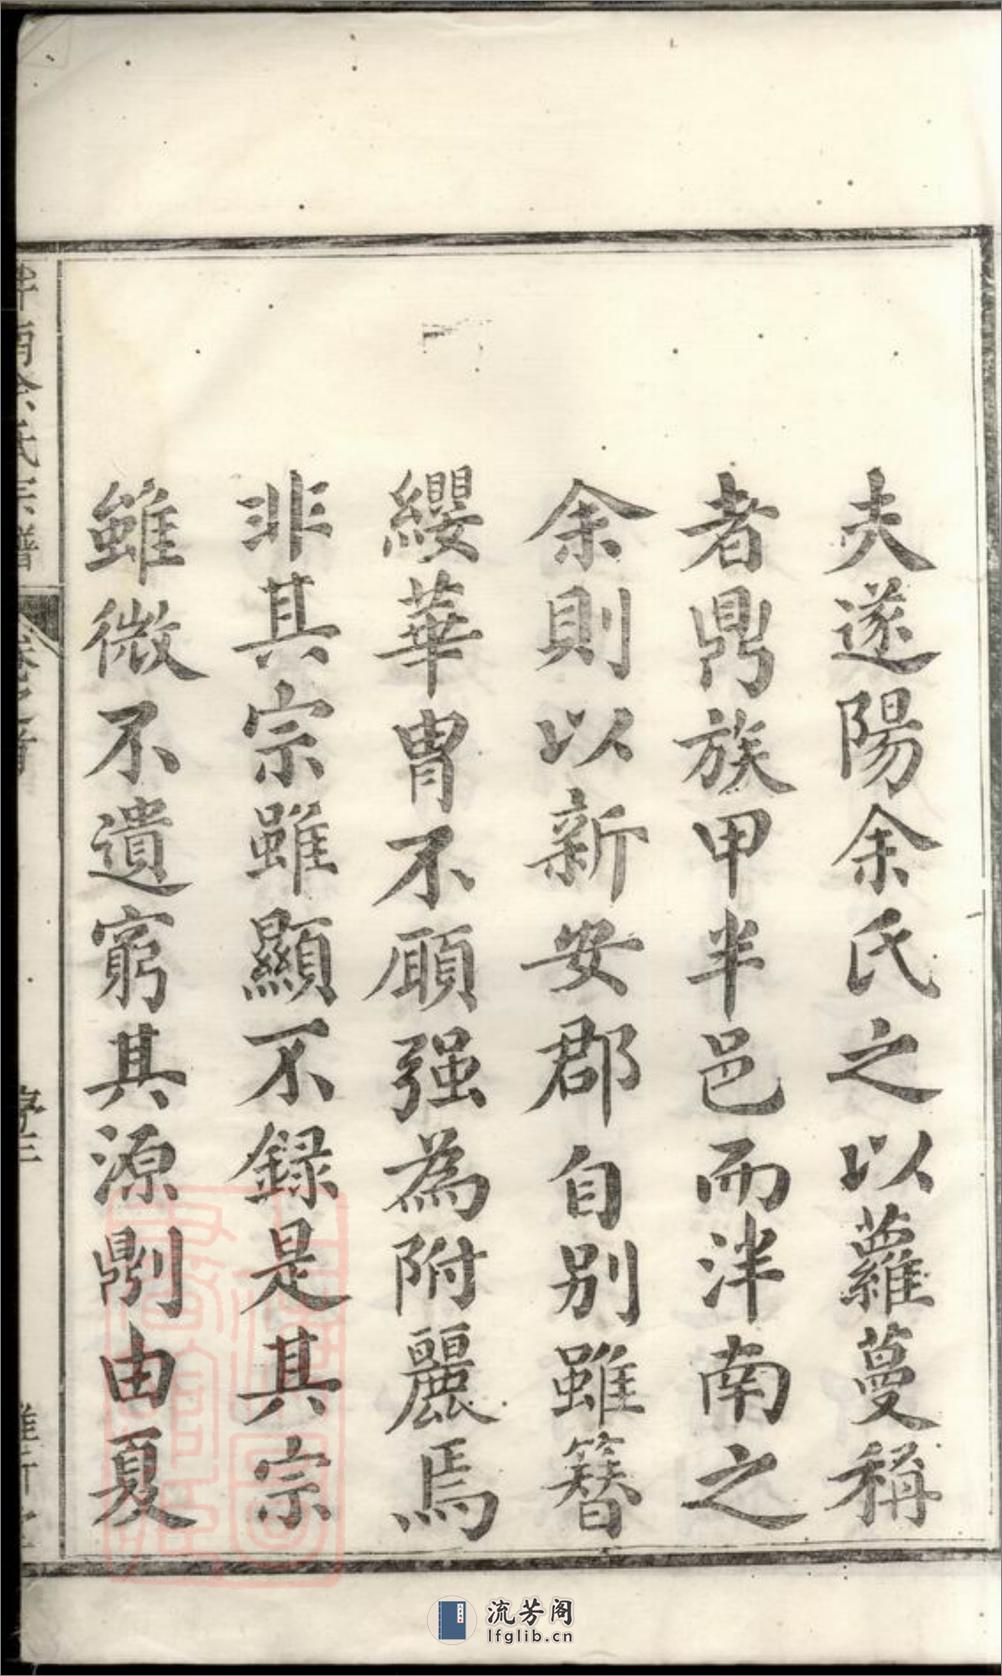 夫遂陽余氏之以蘿蔓稱
者鼎族甲半邑而泮南之
余則以新安郡自別雖簪
纓華胄不顧强為附麗焉
非其宗雖顯不録是其宗
雖微不遺窮其源𠟭由夏
南余氏宗譜
卷之首
序三
流芳阁
lfglib.cn